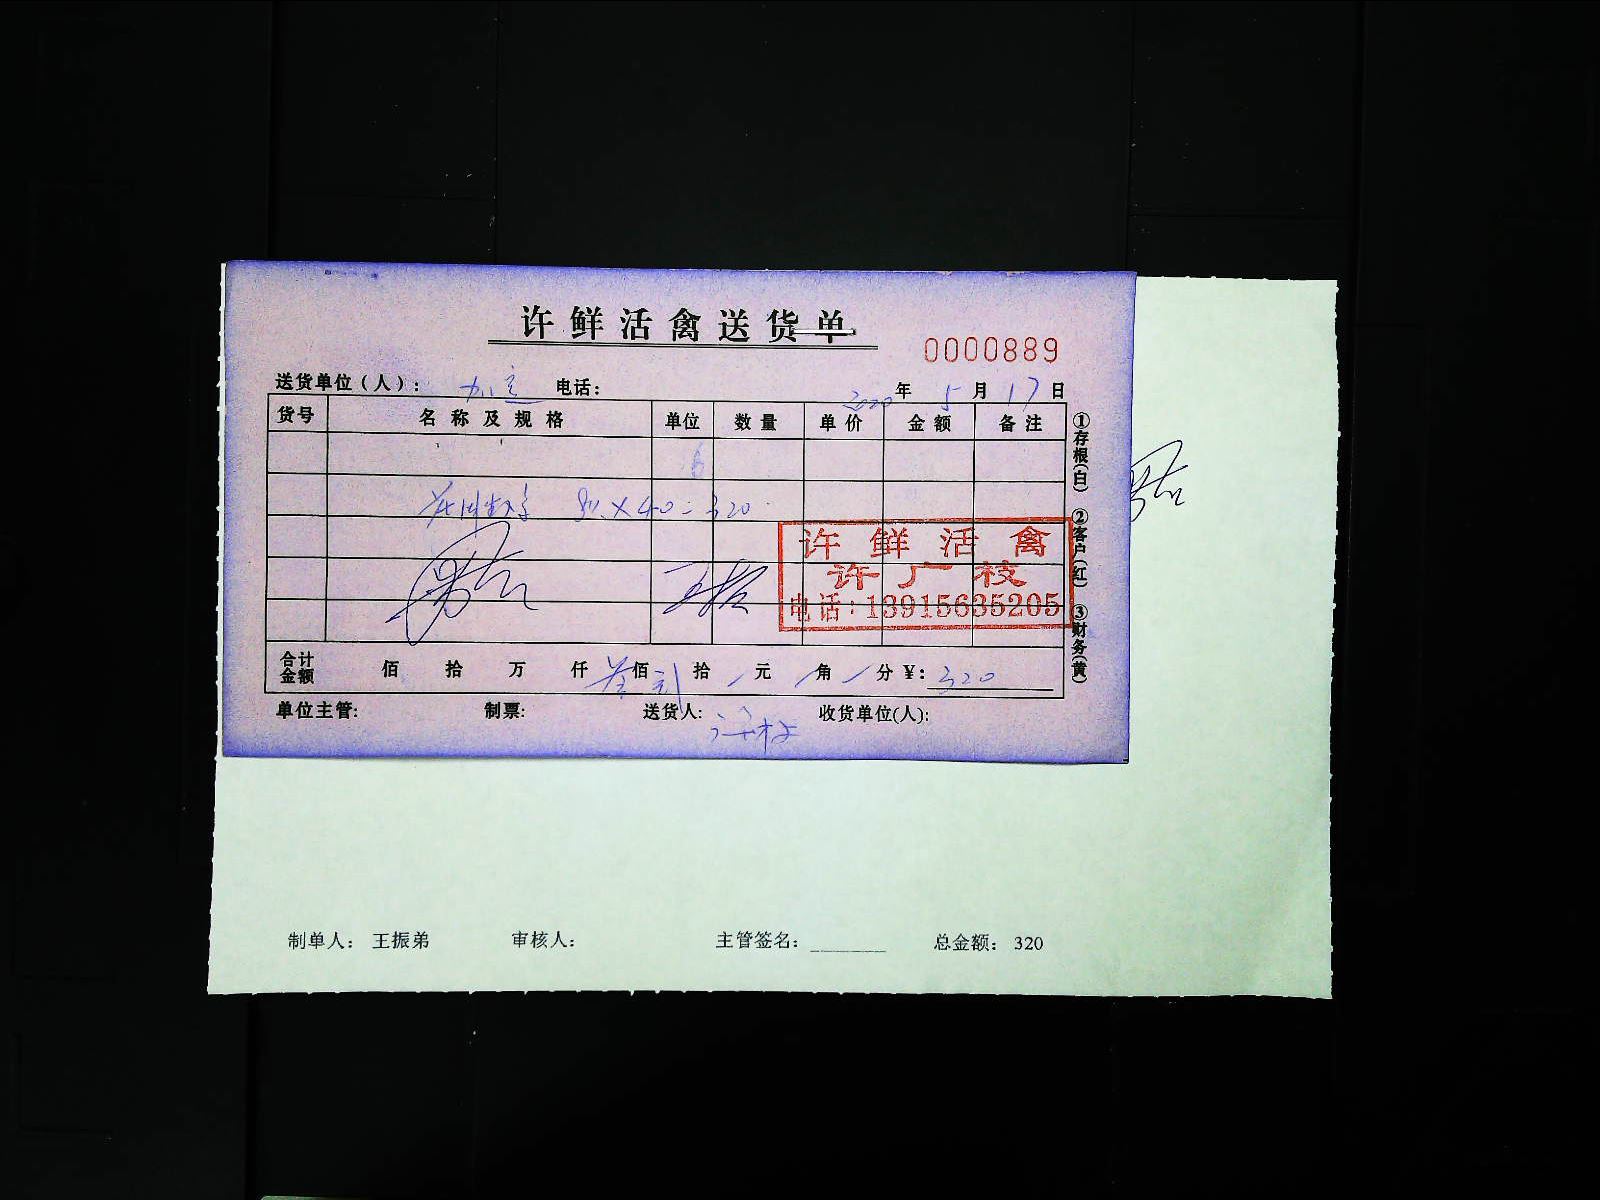 许鲜活禽送货单
0000889
送货单位（人）： 电话： 2020年5月17日
货号 名称及规格 单位 数量 单价 金额 备注
8只×40=320
许鲜活禽
许广枝
电话：13915635205
合计金额 佰 拾 万 仟 叁佰 贰拾 元 角 分 ¥：320
单位主管： 制票： 送货人： 收货单位(人)：
①存根(白) ②客户(红) ③财务(黄)
制单人： 王振弟 审核人： 主管签名： 总金额： 320